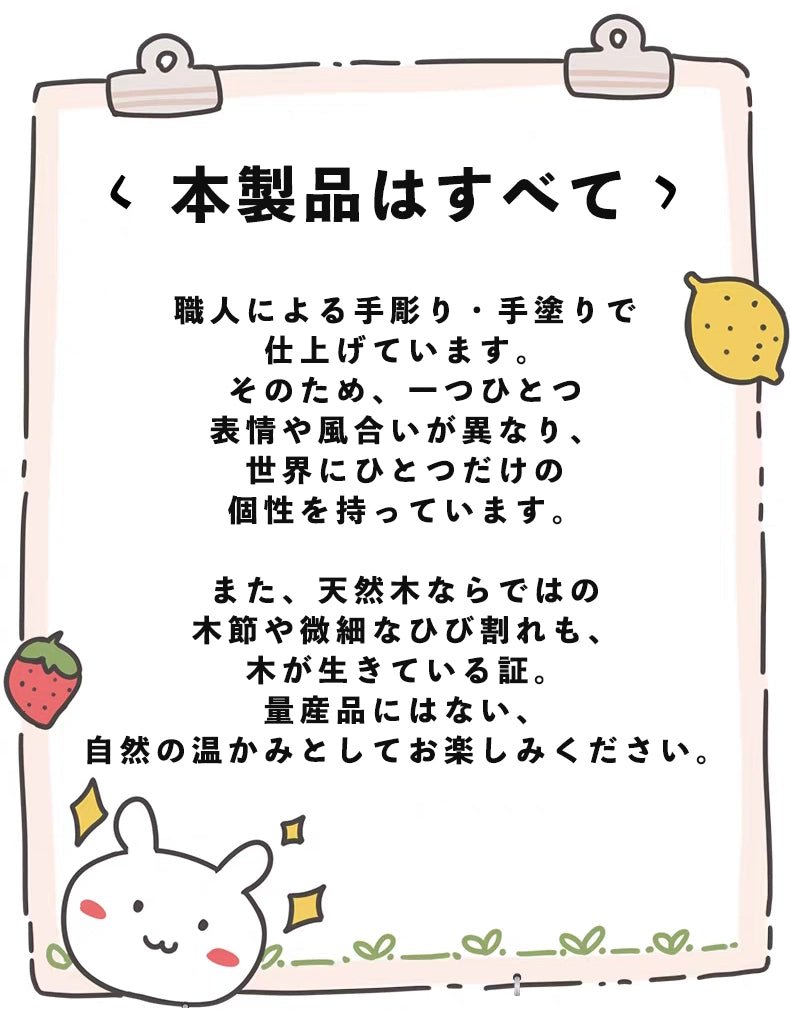 く 本製品はすべて >
職人による手彫り・手塗りで
仕上げています。
そのため、一つひとつ
表情や風合いが異なり、
世界にひとつだけの
個性を持っています。
また、天然木ならではの
木節や微細なひび割れも、
木が生きている証。
量産品にはない、
自然の温かみとしてお楽しみください。